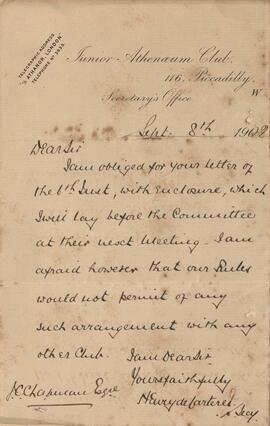 TELEGRAPHIC ADDRESS
"ATHANOR, LONDON"
TELEPHONE Nº
Junior Athenæum Club.
116, Piccadilly,
W
Secretary's Office
Sept. 8th 1902
Dear Sir
I am obliged for your letter of
the 6th Inst, with Enclosure, which
I will lay before the Committee
at their next Meeting. I am
afraid however that our Rules
would not permit of any
such arrangement with any
other Club. I am Dear Sir
Yours faithfully
J.C. Chapman Esqre
Secy.